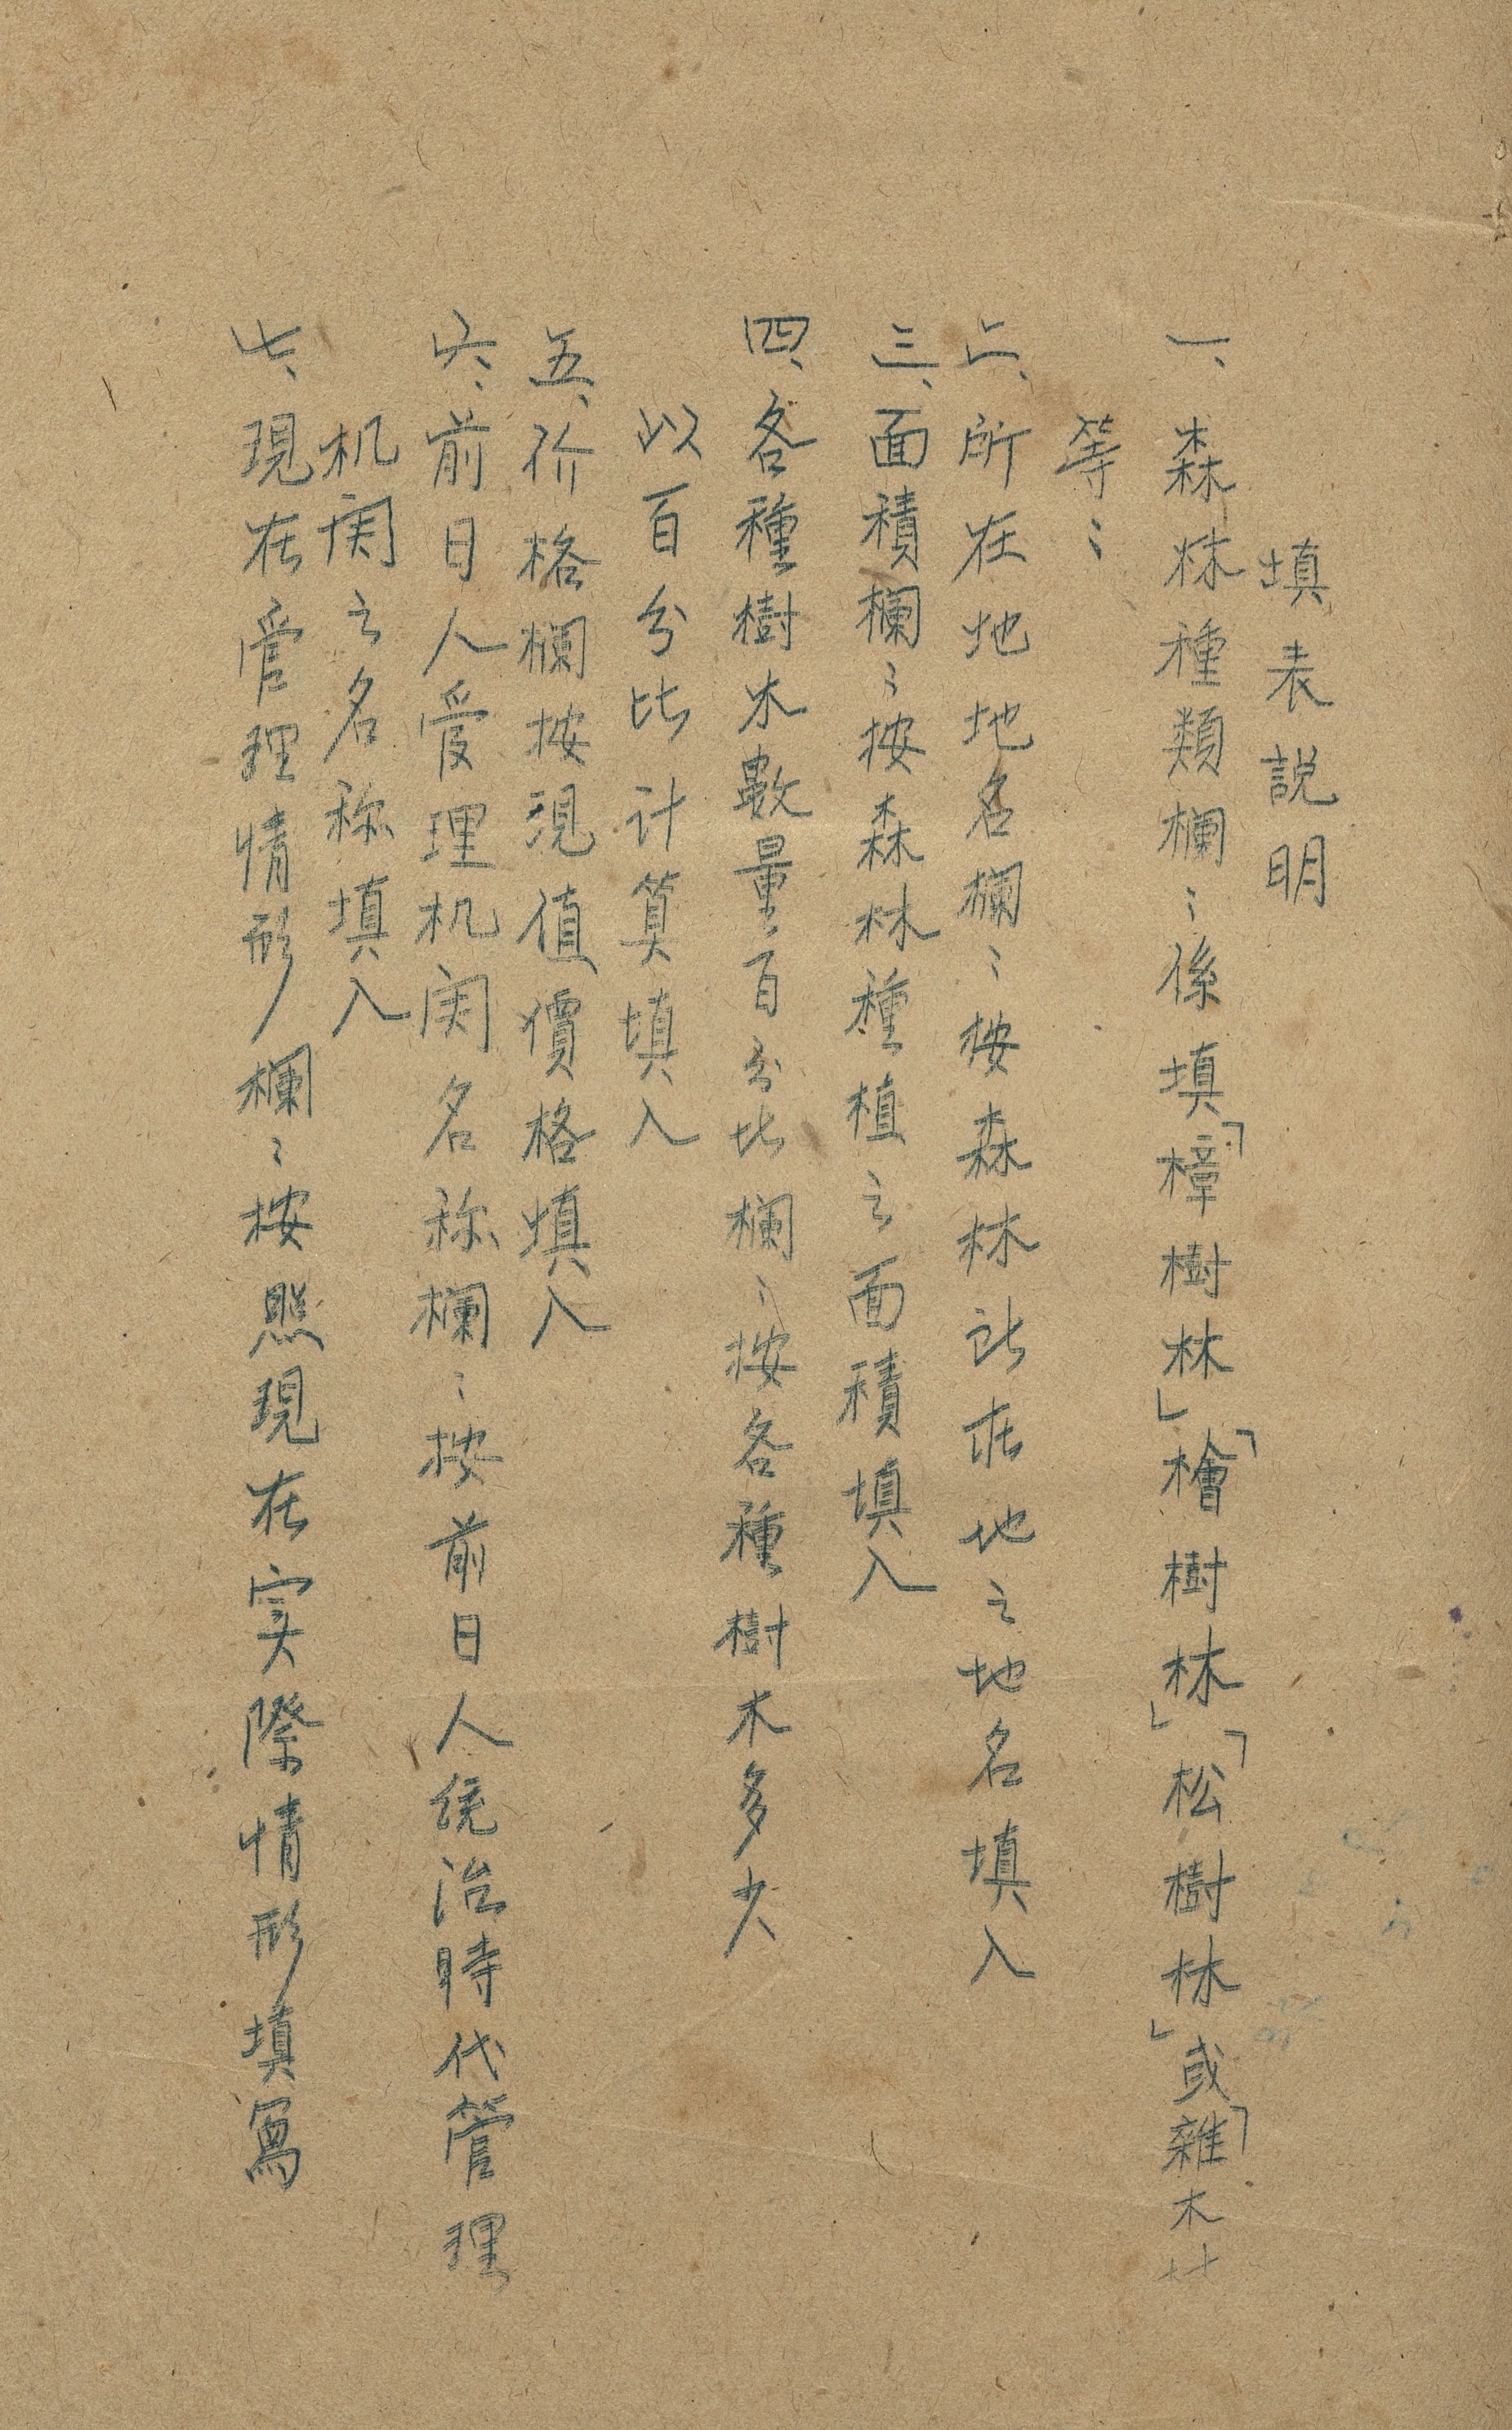 填表説明
一、森林種類欄：係填「樟樹林」「檜樹林」「松樹林」或「雜木林
等：
二、所在地地名欄：按森林所在地之地名填入
三、面積欄：按森林種植之面積填入
四、各種樹木數量百分比欄：按各種樹木多少
以百分比计算填入
五、价格欄按現值價格填入
六、前日人管理机関名称欄：按前日人統治時代管理
机関之名称填入
七、現在管理情形欄：按照現在実際情形填寫